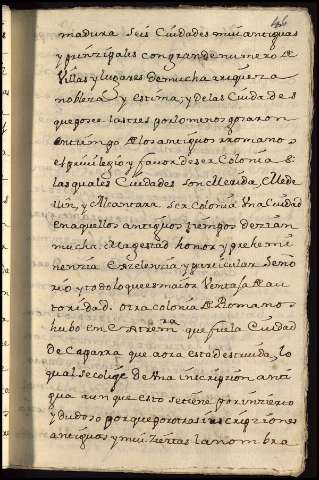 46
madura seis Ciudades mui antiguas
y prinzipales con grande numero de
Villas y lugares de mucha rriqueza
nobleza y estima, y de las Ciudades
que posee las tres por lo menos gozaron
en tiempo de los antiguos rromanos
el privilegio y favor de ser Colonia
las quales Ciudades son Merida, Mede
llin, y Alcantara. Ser colonia Una Ciudad
en aquellos antiguos tiempos dezian
mucha Magestad honor y prehemi
nenzia Exzelenzia y particular Seño
rio y todo lo que es maior Ventaja de au
toridad. otra colonia de Romanos
hubo en Extremra que fue la Ciudad
de Caparra que aora esta destruida, lo
qual se colige de Una inscripzion anti
gua aunque esto se tiene por inzierto
y dudoso porque por otras inscripziones
antiguas y mui Ziertas la nombra